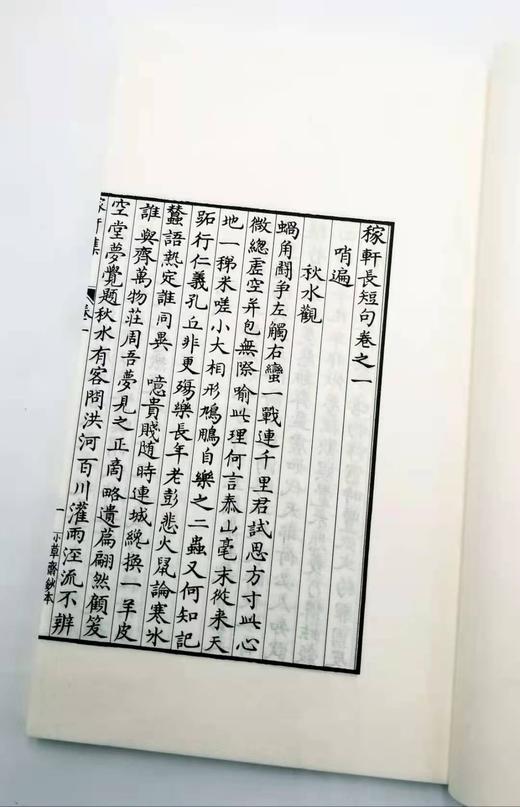 稼軒長短句卷之一
哨遍
秋水觀
蝸角鬪爭左觸右蠻一戰連千里君試思方寸此心
微緫虛空并包無際喻此理何言泰山毫末從来天
地一稊米嗟小大相形鳩鵬自樂之二蟲又何知記
跖行仁義孔丘非更殤樂長年老彭悲火鼠論寒冰
蠶語熱定誰同異 噫貴賤随時連城纔換一羊皮
誰與齊萬物莊周吾夢見之正商略遺篇翩然顧笑
空堂夢覺題秋水有客問洪河百川灌雨涇流不辨
稼軒集 卷一
一 小草齋鈔本